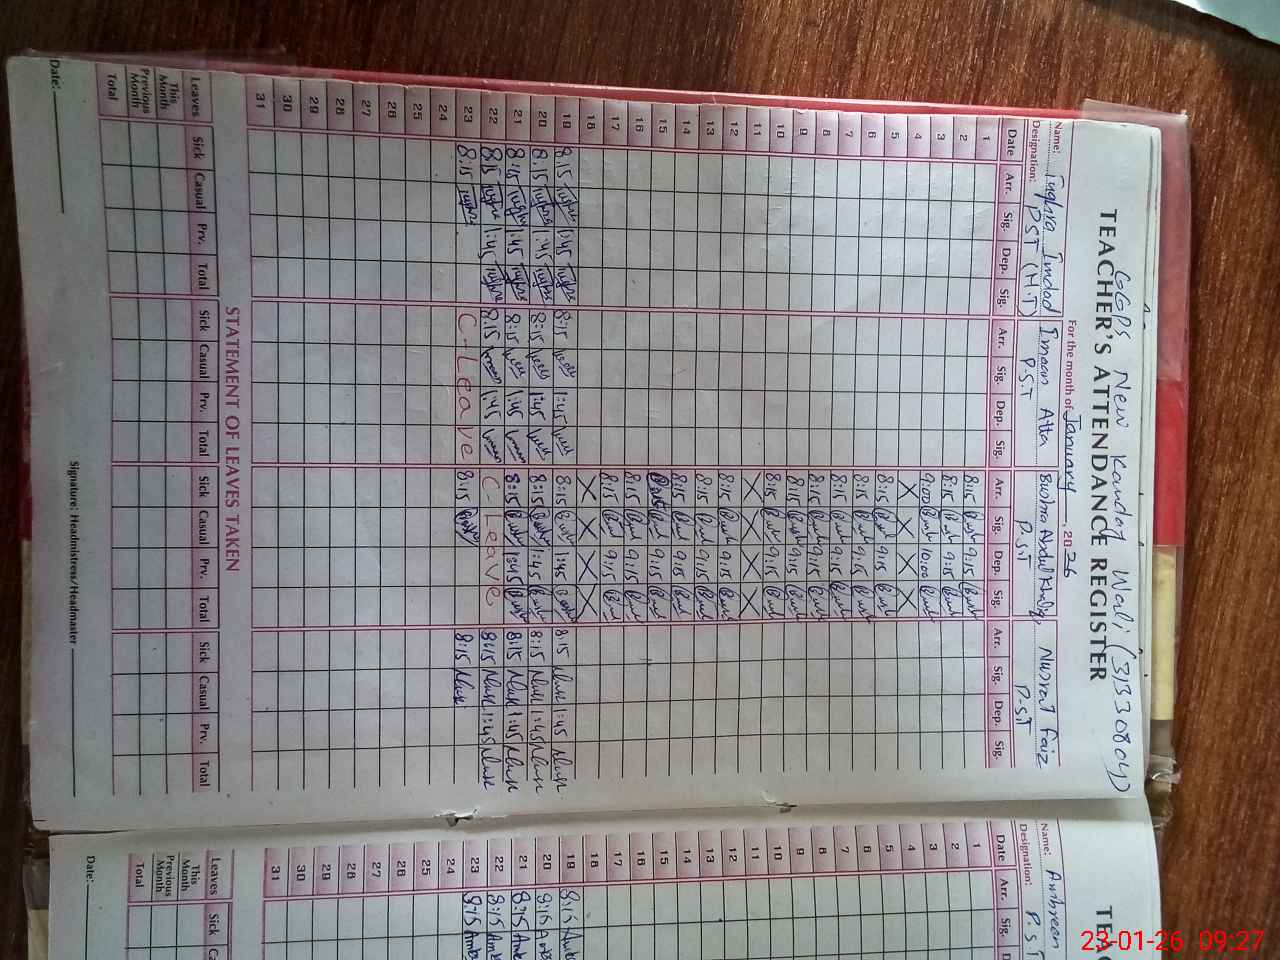 GGPS New Kandar Wali (31330804)
TEACHER'S ATTENDANCE REGISTER
For the month of January, 2026
Name: Tughra Imdad Imaan Atta Bushra Abdul Khaliq Nusrat Faiz
Designation: PST (H.T) P.S.T P.S.T P.S.T
Date Arr. Sig. Dep. Sig. Arr. Sig. Dep. Sig. Arr. Sig. Dep. Sig. Arr. Sig. Dep. Sig.
1
2 8:15 Bush 9:15 Bush
3 8:15 Bush 9:15 Bush
4 9:00 Bush 10:00 Bush
5 X X X X
6 8:15 Bush 9:15 Bush
7 8:15 Bush 9:15 Bush
8 8:15 Bush 9:15 Bush
9 8:15 Bush 9:15 Bush
10 8:15 Bush 9:15 Bush
11 X X X X
12 8:15 Bush 9:15 Bush
13 8:15 Bush 9:15 Bush
14 8:15 Bush 9:15 Bush
15 Bush 9:15 Bush
16 8:15 Bush 9:15 Bush
17 8:15 Bush 9:15 Bush
18 X X X X
19 8:15 Tughra 1:45 Tughra 8:15 1:45 8:15 Bush 1:45 Bush 8:15 Nusr 1:45 Nusr
20 8:15 Tughra 1:45 Tughra 8:15 1:45 8:15 Bush 1:45 Bush 8:15 Nusr 1:45 Nusr
21 8:15 Tughra 1:45 Tughra 8:15 1:45 8:15 Bush 1:45 Bush 8:15 Nusr 1:45 Nusr
22 8:15 Tughra 1:45 Tughra 8:15 Imaan 1:45 Imaan C-Leave 8:15 Nusr 1:45 Nusr
23 8:15 Tughra C-Leave 8:15 Bush 8:15 Nusr
24
25
26
27
28
29
30
31
STATEMENT OF LEAVES TAKEN
Leaves Sick Casual Prv. Total Sick Casual Prv. Total Sick Casual Prv. Total Sick Casual Prv. Total
This Month
Previous Month
Total
Date: Signature: Headmistress/Headmaster
TEAC
Name: Ambreen
Designation: P.S.T
Date Arr. Sig.
1
2
3
4
5
6
7
8
9
10
11
12
13
14
15
16
17
18
19 8:15 Amb
20 8:15 Amb
21 8:15 Amb
22 8:15 Amb
23 8:15 Amb
24
25
26
27
28
29
30
31
Leaves Sick Ca
This Month
Previous Month
Total
Date:
23-01-26 09:27